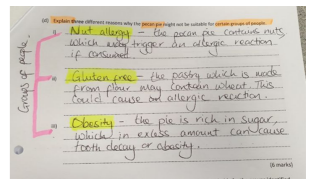 (d) Explain three different reasons why the pecan pie might not be suitable for certain groups of people.
Groups of people.
(i) Nut allergy - the pecan pie contains nuts
which may trigger an allergic reaction
if consumed.
(ii) Gluten free - the pastry which is made
from flour may contain wheat. This
could cause an allergic reaction.
(iii) Obesity - the pie is rich in sugar,
which in excess amount can cause
tooth decay or obasity.
(6 marks)